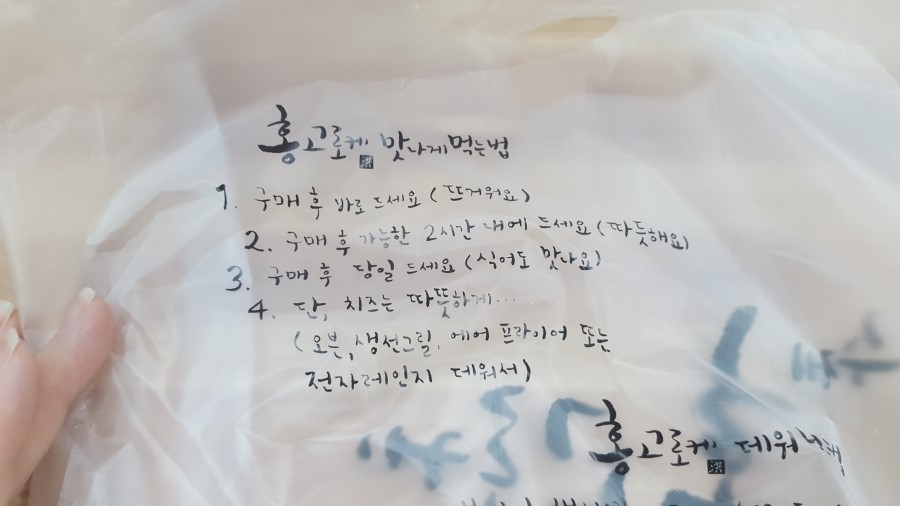 홍고로케 맛나게 먹는법
1. 구매 후 바로 드세요 (뜨거워요)
2. 구매 후 가능한 2시간 내에 드세요 (따뜻해요)
3. 구매 후 당일 드세요 (식어도 맛나요)
4. 단, 치즈는 따뜻하게...
(오븐, 생선그릴, 에어 프라이어 또는
전자레인지 데워서)
홍고로케 데워